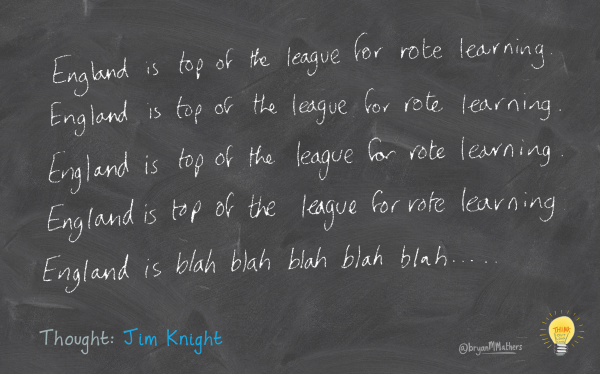 England is top of the league for rote learning.
England is top of the league for rote learning.
England is top of the league for rote learning.
England is top of the league for rote learning
England is blah blah blah blah blah.....
Thought: Jim Knight
@bryanMMathers
THINK